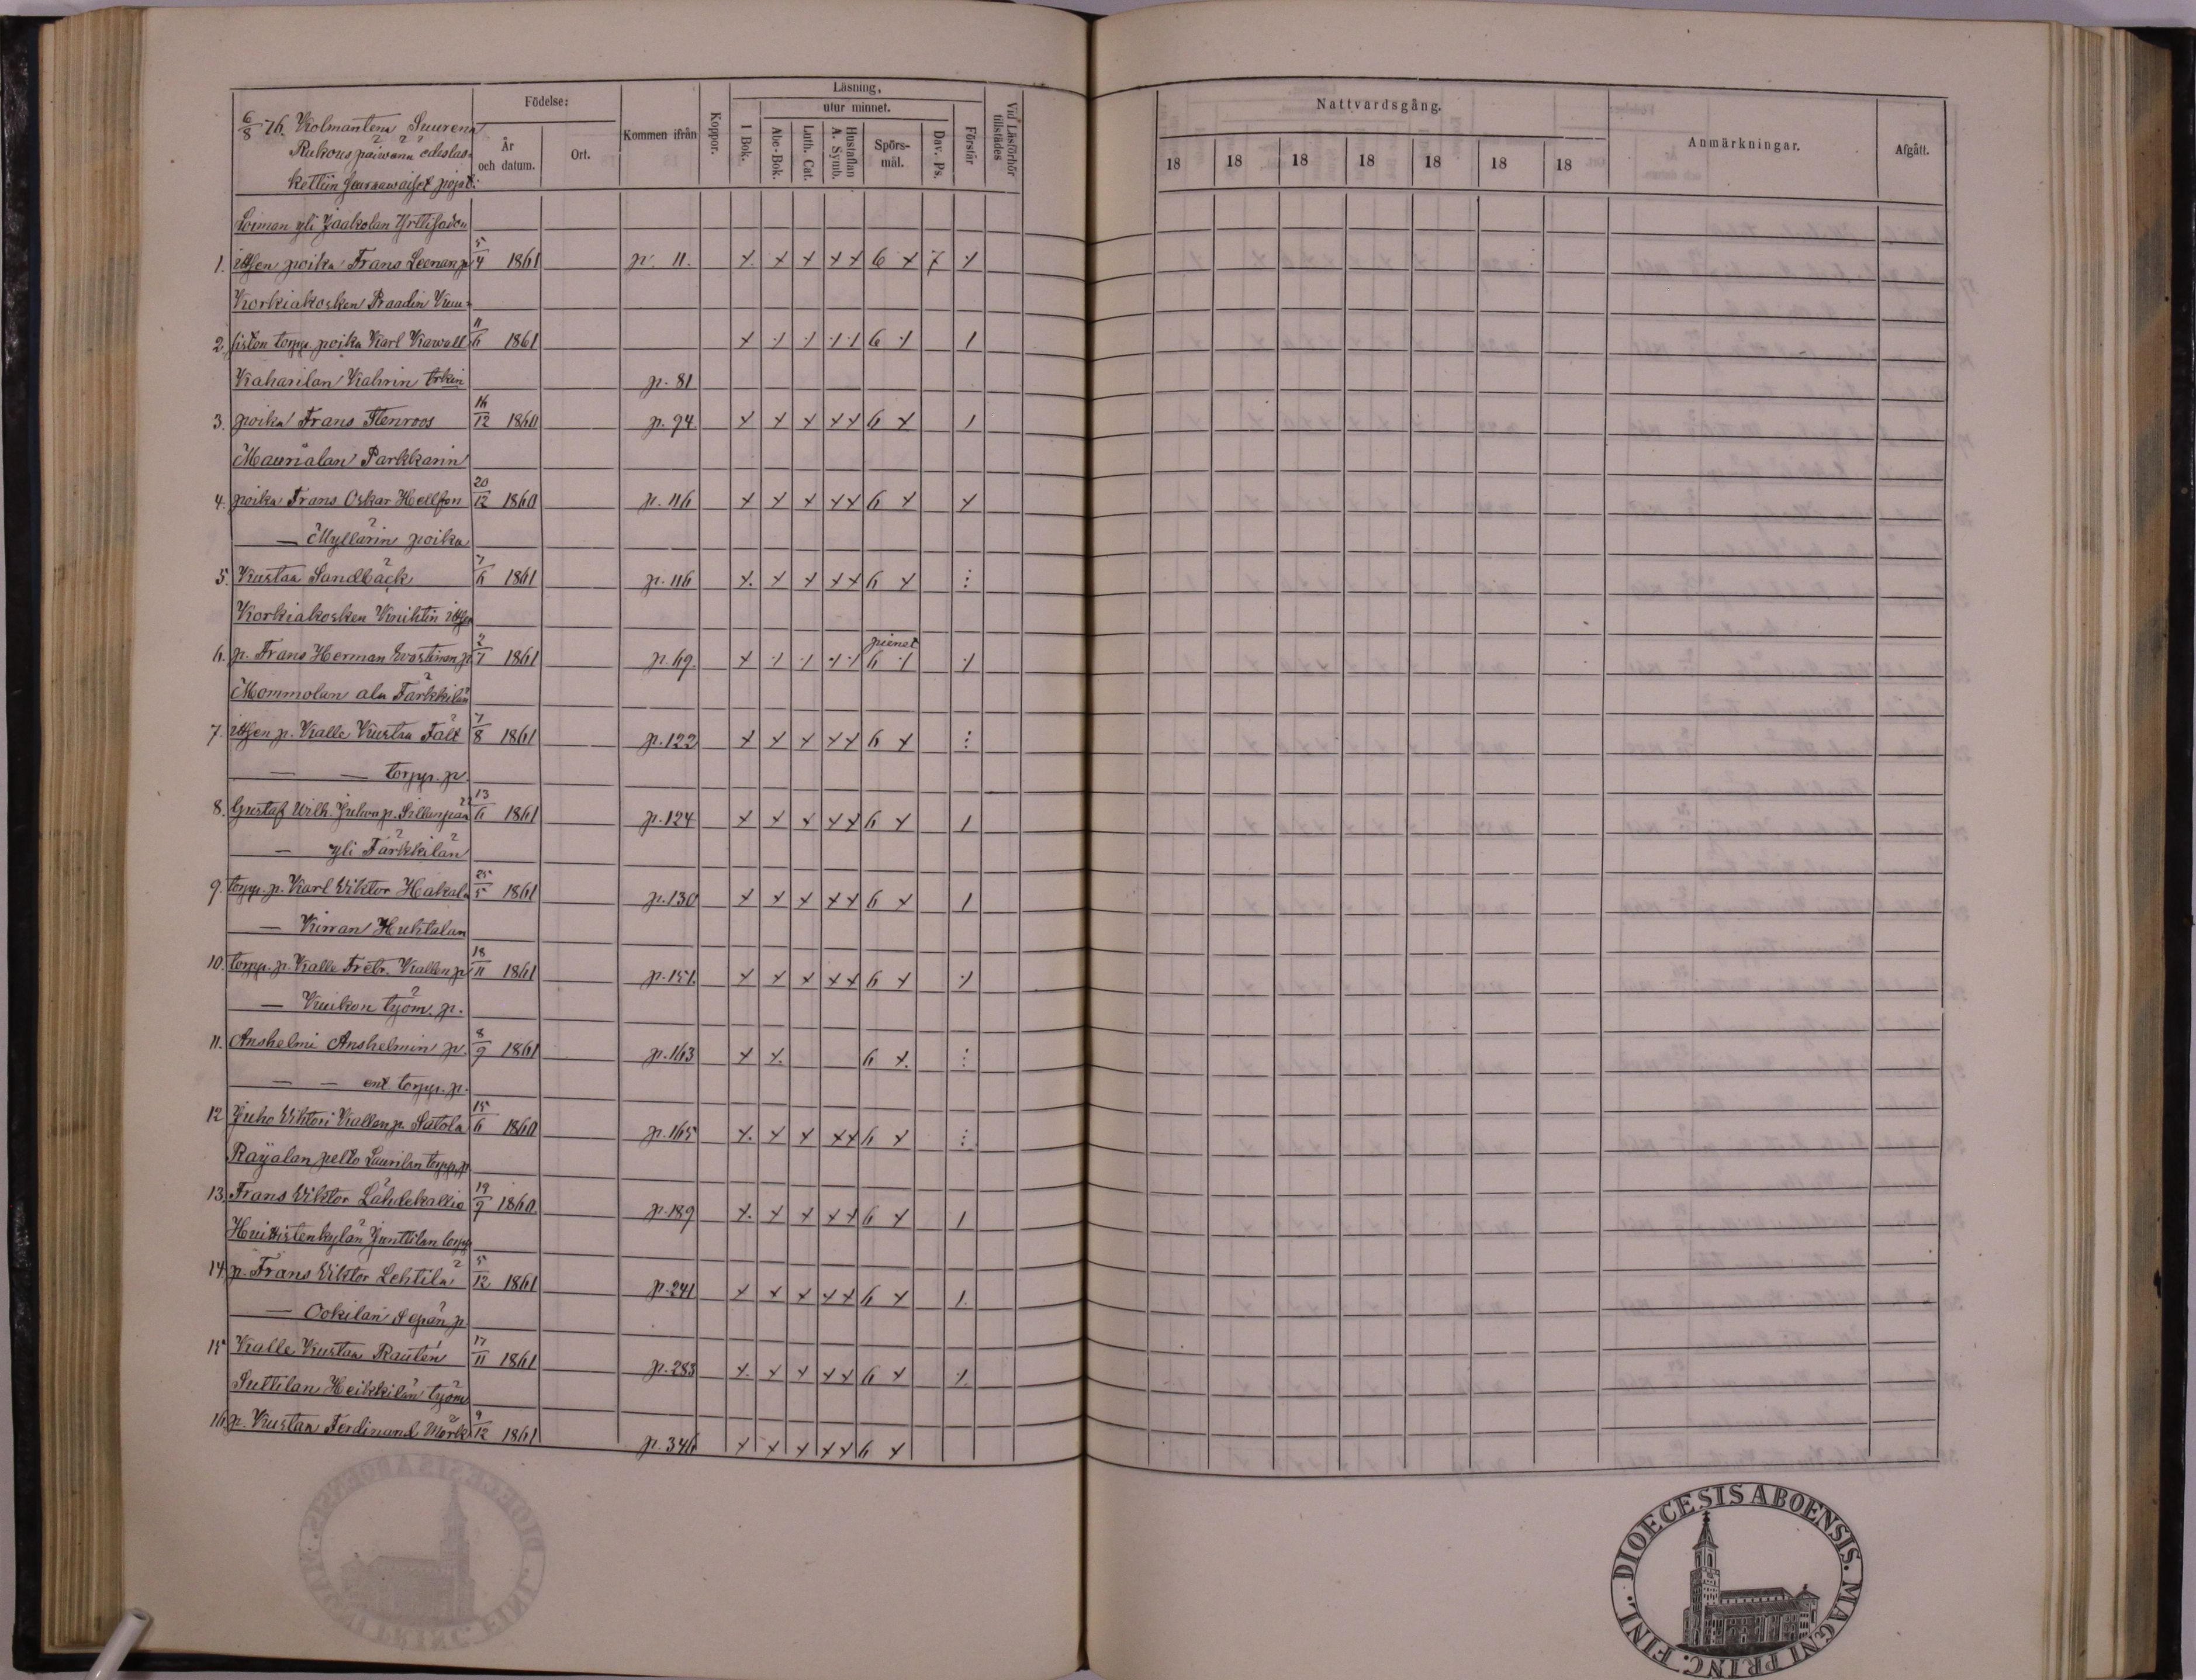 6/8 76. Kolmantena Suurena
Rukouspäiwänä edeslas-
kettiin seuraawaiset pojat:
Födelse:
År och datum.
Ort.
Kommen ifrån
Koppor.
Läsning,
I Bok.
utur minnet.
Abc-Bok.
Luth. Cat.
Hustaflan A. Symb.
Spörs-mål.
Dav. Ps.
Förstår
Vid Läsförhör tillstädes
Nattvardsgång.
18 18 18 18 18 18 18
Anmärkningar.
Afgått.
Loiman yli Jaakolan
1. itsen poika Frans Leenan p. 5/4 1861 p. 11. x x x x x 6 x 7 x
Korkiakosken Praadin Kuu-
2. siston torpp. poika Karl Kawall 11/6 1861 x 6 1
Kaharilan Kahrin p. 81
3. poika Frans Stenroos 16/12 1860 p. 94 x x x x x 6 x 1
Maurialan Parkkarin
4. poika Frans Oskar Hellsen 20/12 1860 p. 116 x x x x x 6 x x
— Myllärin poika
5. Kustaa Sandbäck 7/6 1861 p. 116 x. x x x x 6 x ⋮
Korkiakosken Knihtin
6. p. Frans Herman Evastinan p. 2/7 1861 p. 69. x pienet 6
Mommolan ala Tärkkilän
7. itsen p. Kalle Kustaa Fält 7/8 1861 p. 122 x x x x x 6 x ⋮
— — torpp. p.
8. Gustaf Wilh. Juhon p. Sillanpää 13/6 1861 p. 124 x x x x x 6 x 1
— yli Tärkkilän
9. torpp. p. Karl Viktor Hakala 25/5 1861 p. 130 x x x x x 6 x 1
— Kirran Huhtalan
10. torpp. p. Kalle Fretr. Kallen p. 18/11 1861 p. 151. x x x x x 6 x
— Kuikon työm. p.
11. Anshelmi Anshelmin p. 8/9 1861 p. 163 x x. 6 x. ⋮
— — ent torpp. p.
12 Juho Wihtori Kallen p. Satola 15/6 1860 p. 165 x. x x x x 6 x ⋮
Rayalan pelto Laurilan torpp. p.
13. Frans Viktor Lähdekallio 19/9 1860 p. 189 x. x x x x 6 x 1
Huittistenkylän Junttilan torpp
14. p. Frans Viktor Lehtilä 5/12 1861 p. 241 x x x x x 6 x 1.
— Cokilan Sepän p.
15 Kalle Kustaa Rautén 17/11 1861 p. 283 x. x x x x 6 x
Suttilan Heikkilän työm
16. p. Kustaa Ferdinand Mörk 9/12 1861 p. 346 x x x x x 6 x
DIOECESIS ABOENSIS. MAGNI PRINC. FINL.